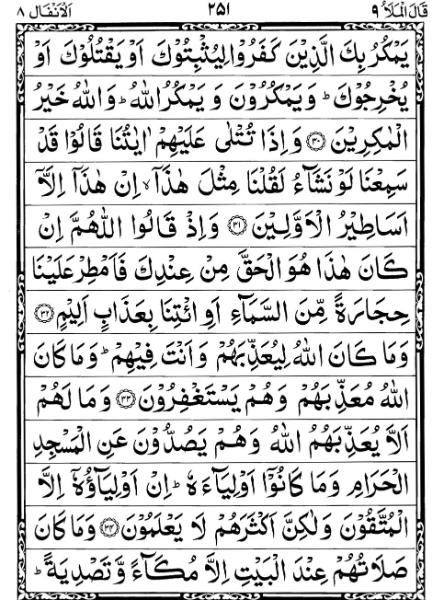 قَالَ الْمَلَاُ ٩ ٢٥١ اَلْاَنْفَال ٨
يَمْكُرُ بِكَ الَّذِيْنَ كَفَرُوْا لِيُثْبِتُوْكَ اَوْ يَقْتُلُوْكَ اَوْ
يُخْرِجُوْكَ ؕ وَيَمْكُرُوْنَ وَ يَمْكُرُ اللّٰهُ ؕ وَاللّٰهُ خَيْرُ
الْمٰكِرِيْنَ ﴿٣٠﴾ وَاِذَا تُتْلٰى عَلَيْهِمْ اٰيٰتُنَا قَالُوْا قَدْ
سَمِعْنَا لَوْ نَشَآءُ لَقُلْنَا مِثْلَ هٰذَاۤ ۙ اِنْ هٰذَاۤ اِلَّاۤ
اَسَاطِيْرُ الْاَوَّلِيْنَ ﴿٣١﴾ وَاِذْ قَالُوا اللّٰهُمَّ اِنْ
كَانَ هٰذَا هُوَ الْحَقَّ مِنْ عِنْدِكَ فَاَمْطِرْ عَلَيْنَا
حِجَارَةً مِّنَ السَّمَآءِ اَوِ ائْتِنَا بِعَذَابٍ اَلِيْمٍ ﴿٣٢﴾
وَمَا كَانَ اللّٰهُ لِيُعَذِّبَهُمْ وَاَنْتَ فِيْهِمْ ؕ وَمَا كَانَ
اللّٰهُ مُعَذِّبَهُمْ وَهُمْ يَسْتَغْفِرُوْنَ ﴿٣٣﴾ وَمَا لَهُمْ
اَلَّا يُعَذِّبَهُمُ اللّٰهُ وَهُمْ يَصُدُّوْنَ عَنِ الْمَسْجِدِ
الْحَرَامِ وَمَا كَانُوْۤا اَوْلِيَآءَهٗ ؕ اِنْ اَوْلِيَآؤُهٗۤ اِلَّا
الْمُتَّقُوْنَ وَلٰكِنَّ اَكْثَرَهُمْ لَا يَعْلَمُوْنَ ﴿٣٤﴾ وَمَا كَانَ
صَلَاتُهُمْ عِنْدَ الْبَيْتِ اِلَّا مُكَآءً وَّ تَصْدِيَةً ؕ